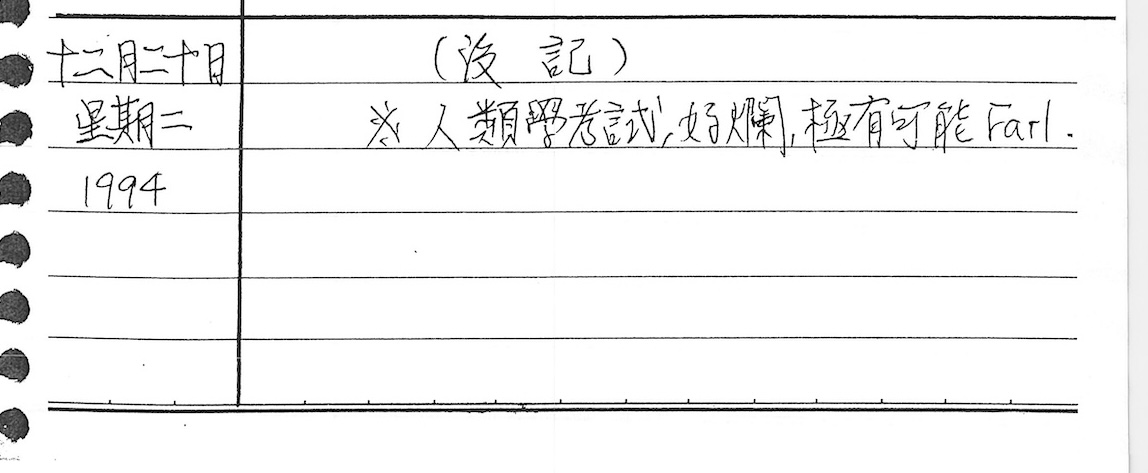 十二月二十日
(沒 記)
星期二
※ 人類學考試,好爛,極有可能 Farl.
1994